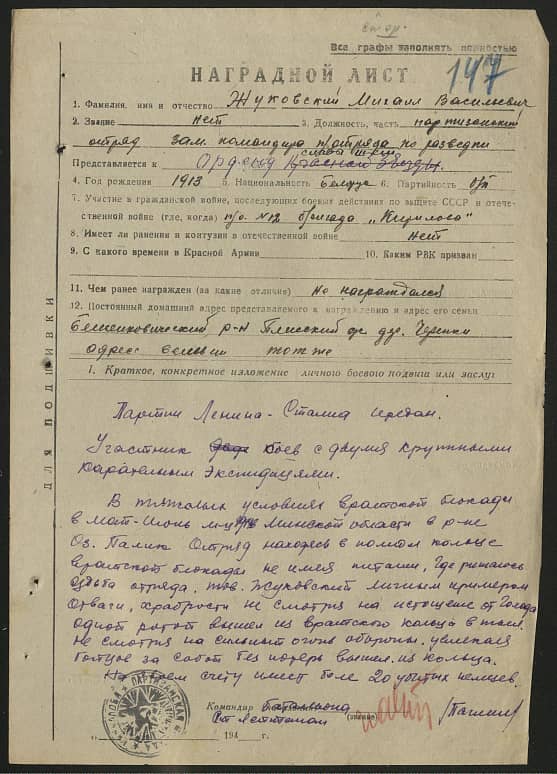 Все графы заполнять полностью
147
НАГРАДНОЙ ЛИСТ
1. Фамилия, имя и отчество Жуковский Михаил Васильевич
2. Звание нет 3. Должность, часть партизанский
отряд зам. командира п/отряда по разведки
Представляется к Ордену Славы Красной Звезды
4. Год рождения 1913 5. Национальность Белорус 6. Партийность б/п
7. Участие в гражданской войне, последующих боевых действиях по защите СССР и отече-
ственной войне (где, когда) п/о №12 бригада "Кирилова"
8. Имеет ли ранения и контузии в отечественной войне нет
9. С какого времени в Красной Армии 10. Каким РВК призван
11. Чем ранее награжден (за какие отличия) не награждался
12. Постоянный домашний адрес представляемого к награждению и адрес его семьи
Бешенковический р-н дер.
адрес семьи тот же
I. Краткое, конкретное изложение личного боевого подвига или заслуг
ДЛЯ ПОДШИВКИ
Партии Ленина-Сталина предан.
Участник боев с двумя крупными
карательными экспидициями.
В тяжолых условиях вражской блокады
в мае-июнь м-ц Минской области в р-не
Оз. Палик Отряд находясь в полном кольце
вражской блокады не имея питания, где решалось
судьба отряда, тов. Жуковский личным примером
отваги, храбрости не смотря на истощение от голода
одной ротой вышел из вражского кольца в тыл.
не смотря на сильный огонь обороны, увлекая
бойцов за собой без потерь вышел из кольца.
На своем счету имеет боле 20 убитых немцев.
Командир
(звание)
Ст. Лейтенант
"___" 194 г.